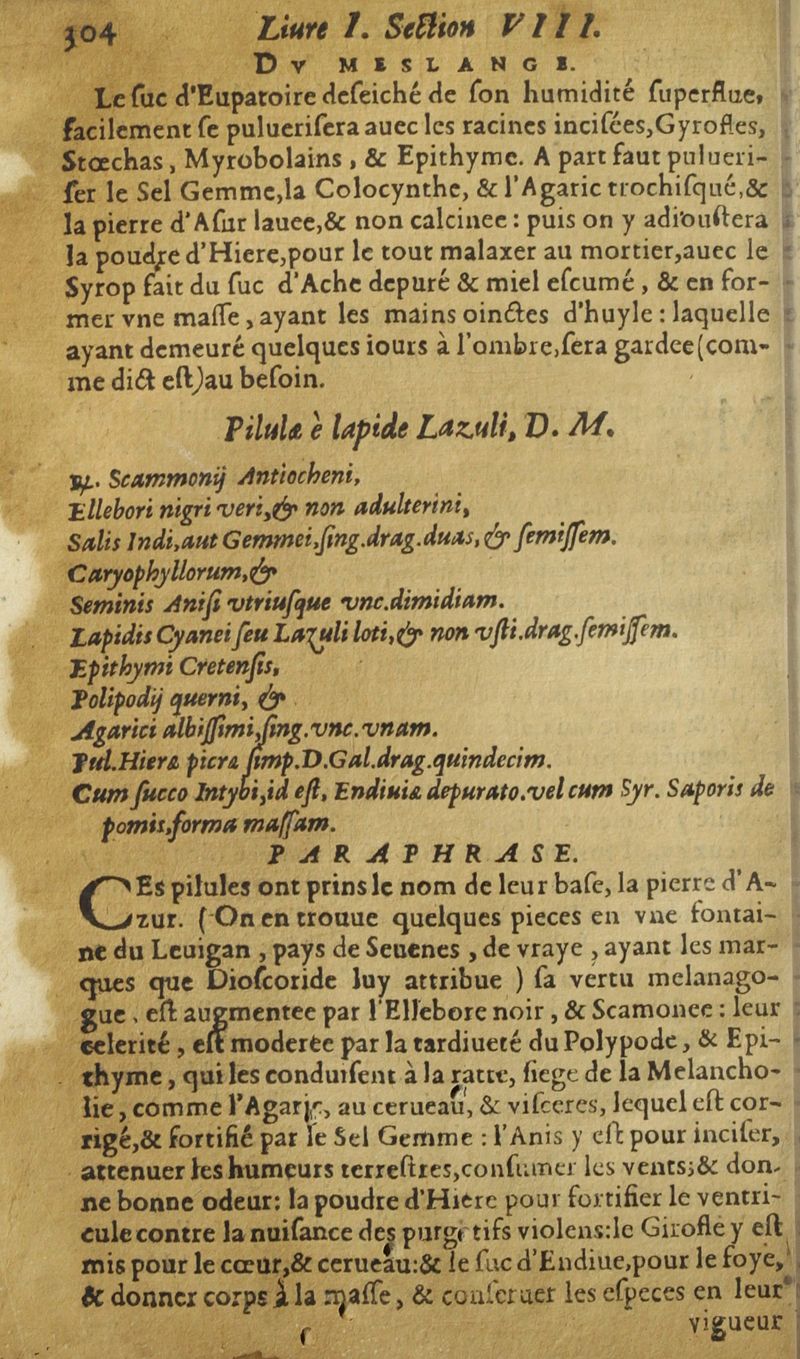 304 Liure I. Section VIII.
DV MESLANGE.
Le suc d'Eupatoire deseiché de son humidité superflue,
facilement se puluerisera auec les racines incisées,Gyrofles,
Stœchas, Myrobolains, & Epithyme. A part faut pulueri-
ser le Sel Gemme,la Colocynthe, & l'Agaric trochisqué,&
la pierre d'Asur lauee,& non calcinee: puis on y adioustera
la poudre d'Hiere,pour le tout malaxer au mortier,auec le
Syrop fait du suc d'Ache depuré & miel escumé, & en for-
mer vne masse, ayant les mains oinctes d'huyle: laquelle
ayant demeuré quelques iours à l'ombre,sera gardee(com-
me dict est)au besoin.
Pilulæ è lapide Lazuli, D. M.
℞. Scammonij Antiocheni,
Ellebori nigri veri,& non adulterini,
Salis Indi,aut Gemmei,sing.drag.duas, & semissem.
Caryophyllorum,&
Seminis Anisi vtriusque vnc.dimidiam.
Lapidis Cyanei seu Lazuli loti,& non vsti.drag.semissem.
Epithymi Cretensis,
Polipodij querni, &
Agarici albissimi,sing.vnc.vnam.
Pul.Hieræ picræ simp.D.Gal.drag.quindecim.
Cum succo Intybi,id est, Endiuiæ depurato.vel cum Syr. Saporis de
pomis,forma massam.
PARAPHRASE.
CEs pilules ont prins le nom de leur base, la pierre d'A-
zur. (On en trouue quelques pieces en vne fontai-
ne du Leuigan, pays de Seuenes, de vraye, ayant les mar-
ques que Dioscoride luy attribue) sa vertu melanago-
gue, est augmentee par l'Ellebore noir, & Scamonee: leur
celerité, est moderée par la tardiueté du Polypode, & Epi-
thyme, qui les conduisent à la ratte, siege de la Melancho-
lie, comme l'Agaric, au cerueau, & visceres, lequel est cor-
rigé,& fortifié par le Sel Gemme: l'Anis y est pour inciser,
attenuer les humeurs terrestres,consumer les vents;& don-
ne bonne odeur: la poudre d'Hiere pour fortifier le ventri-
cule contre la nuisance des purgatifs violens:le Girofle y est
mis pour le cœur,& cerueau:& le suc d'Endiue,pour le foye,
& donner corps à la masse, & conseruer les especes en leur
vigueur